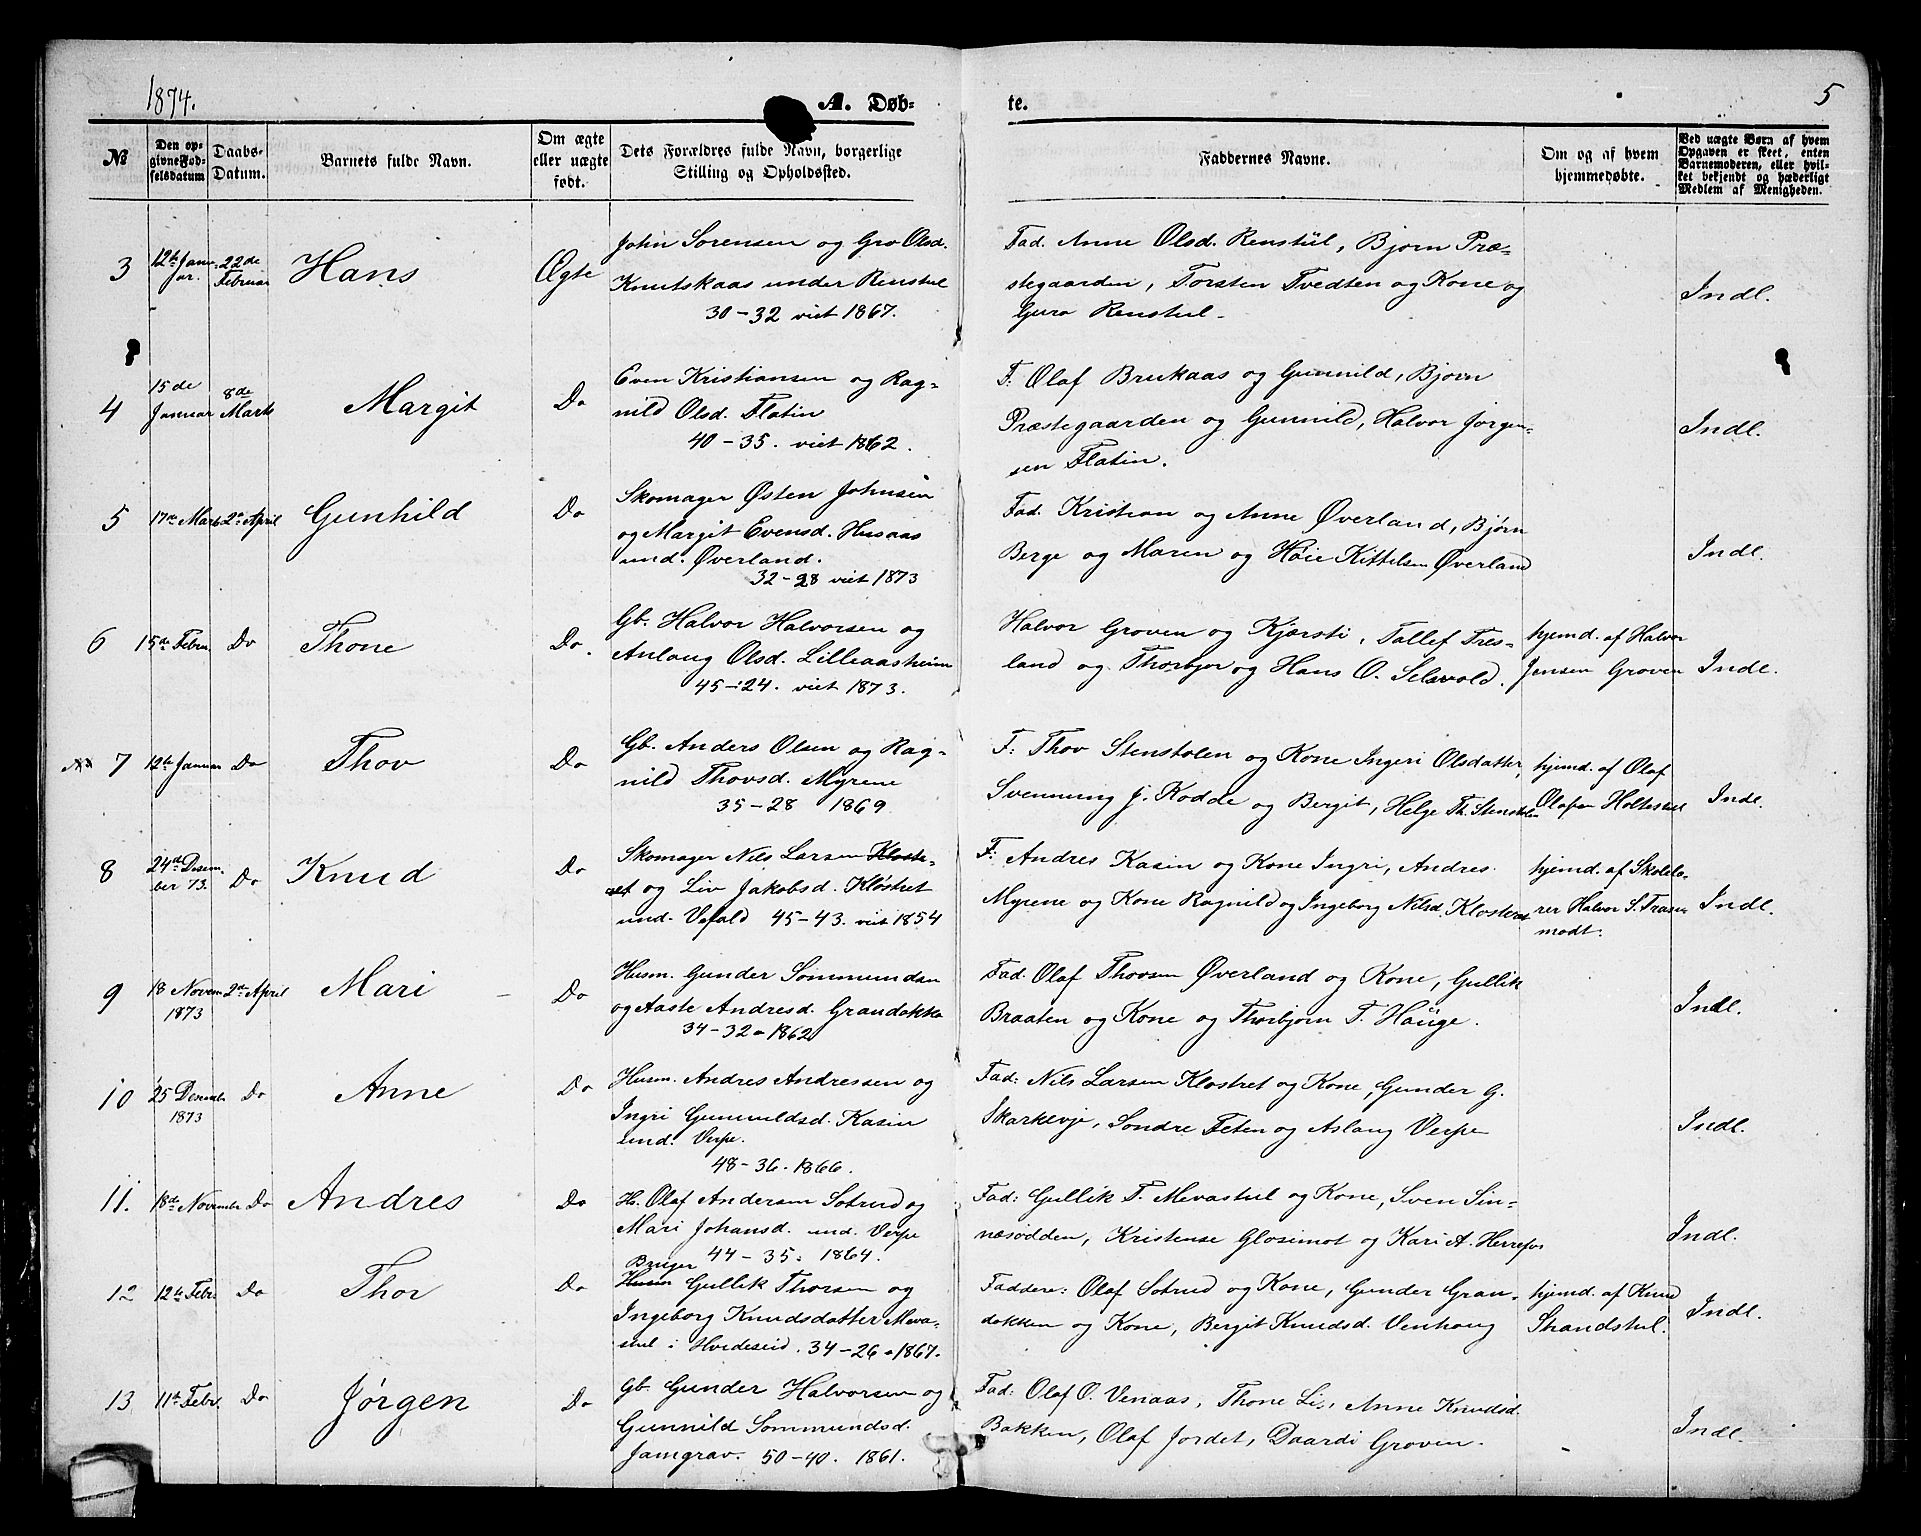 1874.
A. Døb-
te.
5
№
Den op-
givne Fød-
selsdatum
Daabs-
Datum.
Barnets fulde Navn.
Om ægte
eller uægte
født.
Dets Forældres fulde Navn, borgerlige
Stilling og Opholdssted.
Faddernes Navne.
Om og af hvem
hjemmedøbte.
Ved uægte Børn af hvem
Opgaven er skeet, enten
Barnemoderen, eller hvil-
ket bekjendt og hæderligt
Medlem af Menigheden.
3
12te Janu-
ar.
22de
Februar
Hans
Ægte
John Sorensen og Gro Olsd.
Knutskaas under Renstul
30-32 viet 1867.
Fad. Anne Olsd. Renstul, Bjorn Præ-
stegaarden, Torsten Tvedten og Kone og
Guro Renstul.
Indl.
4
15de
Januar
8de
Marts
Margit
Do
Even Kristiansen og Rag-
nild Olsd. Flatin
40-35. viet 1862.
F: Olaf Brukaas og Gunnild, Bjorn
Præstegaarden og Gunnild, Halvor Jorgen-
sen Flatin.
Indl.
5
17de Marts
2de April
Gunhild
Do
Skomager Østen Johnsen
og Margit Evensd. Husaas
und. Øverland.
32-28 viet 1873
Fad. Kristian og Anne Øverland, Bjørn
Berge og Maren og Høie Kittelsen Øverland
Indl.
6
15de Febru.
Do
Thone
Do.
Gb. Halvor Halvorsen og
Anlaug Olsd. Lilleaasheim
45-24. viet 1873.
Halvor Groven og Kjærsti, Tallef Tres-
land og Thorbjor og Hans O. Selsvold.
hjemd. af Halvor
Jensen Groven
Indl.
7
12te Januar
Do
Thov
Do
Gb. Anders Olsen og Rag-
nild Thovsd. Myrene
35-28 1869
F: Thov Stenstolen og Kone Ingeri Olsdatter,
Svennung J. Kodde og Bergit, Helge Th. Stenstolen
hjemd. af Olaf
Olafsen Holtestul
Indl.
8
24de Desem-
ber 73.
Do
Knud
Do
Skomager Nils Larsen Kloste-
ret og Liv Jakobsd. Klóstret
und. Vefald 45-43. viet 1854
F: Andres Kasin og Kone Ingri, Andres
Myrene og Kone Ragnild og Ingeborg Nilsd. Klosteret
hjemd. af Skolelæ-
rer Halvor S. Trasen
modt.
Indl.
9
18 Novem
1873
2de April
Mari
Do
Husm. Gunder Sommundsen
og Aaste Andresd. Grandokka
34-32 - 1862
Fad. Olaf Thovsen Øverland og Kone, Gullik
Braaten og Kone og Thorbjorn T. Haüge.
Indl.
10
25 Desember
1873
Do
Anne
Do
Husm. Andres Andressen og
Ingri Gunnuldsd. Kasin
und. Verpe.
48-36. 1866.
Fad: Nils Larsen Klostret og Kone, Gunder G.
Skarkevje, Sondre Teten og Aslaug Verpe
Indl.
11.
18de November
Do
Andres
Do
H. Olaf Andersen Sotrud og
Mari Johansd. und. Verpe
44-35. 1864.
Fad: Gullik T. Mevastul og Kone, Sven Sin-
næsødden, Kristense Glosimot og Kari A. Herrefos
Indl.
12
12te Febr.
Do
Thor
Do
Bruger
Husm Gullik Thorsen og
Ingeborg Knudsdatter Meva-
stul i Hvideseid. 34-26 - 1867.
Faddere: Olaf Sotrud og Kone, Gunder Gran-
dokken og Kone, Bergit Knudsd. Venhaug
hjemd. af Knud
Strandstul.
Indl.
13
11te Febr.
Do
Jørgen
Do
Gb. Gunder Halvorsen og
Gunnild Sommundsd.
Jamgrav. 50-40. 1861.
Fad: Olaf O. Venaas, Thone Li, Anne Knudsd.
Bakken, Olaf Jordet, Daardi Groven.
Indl.